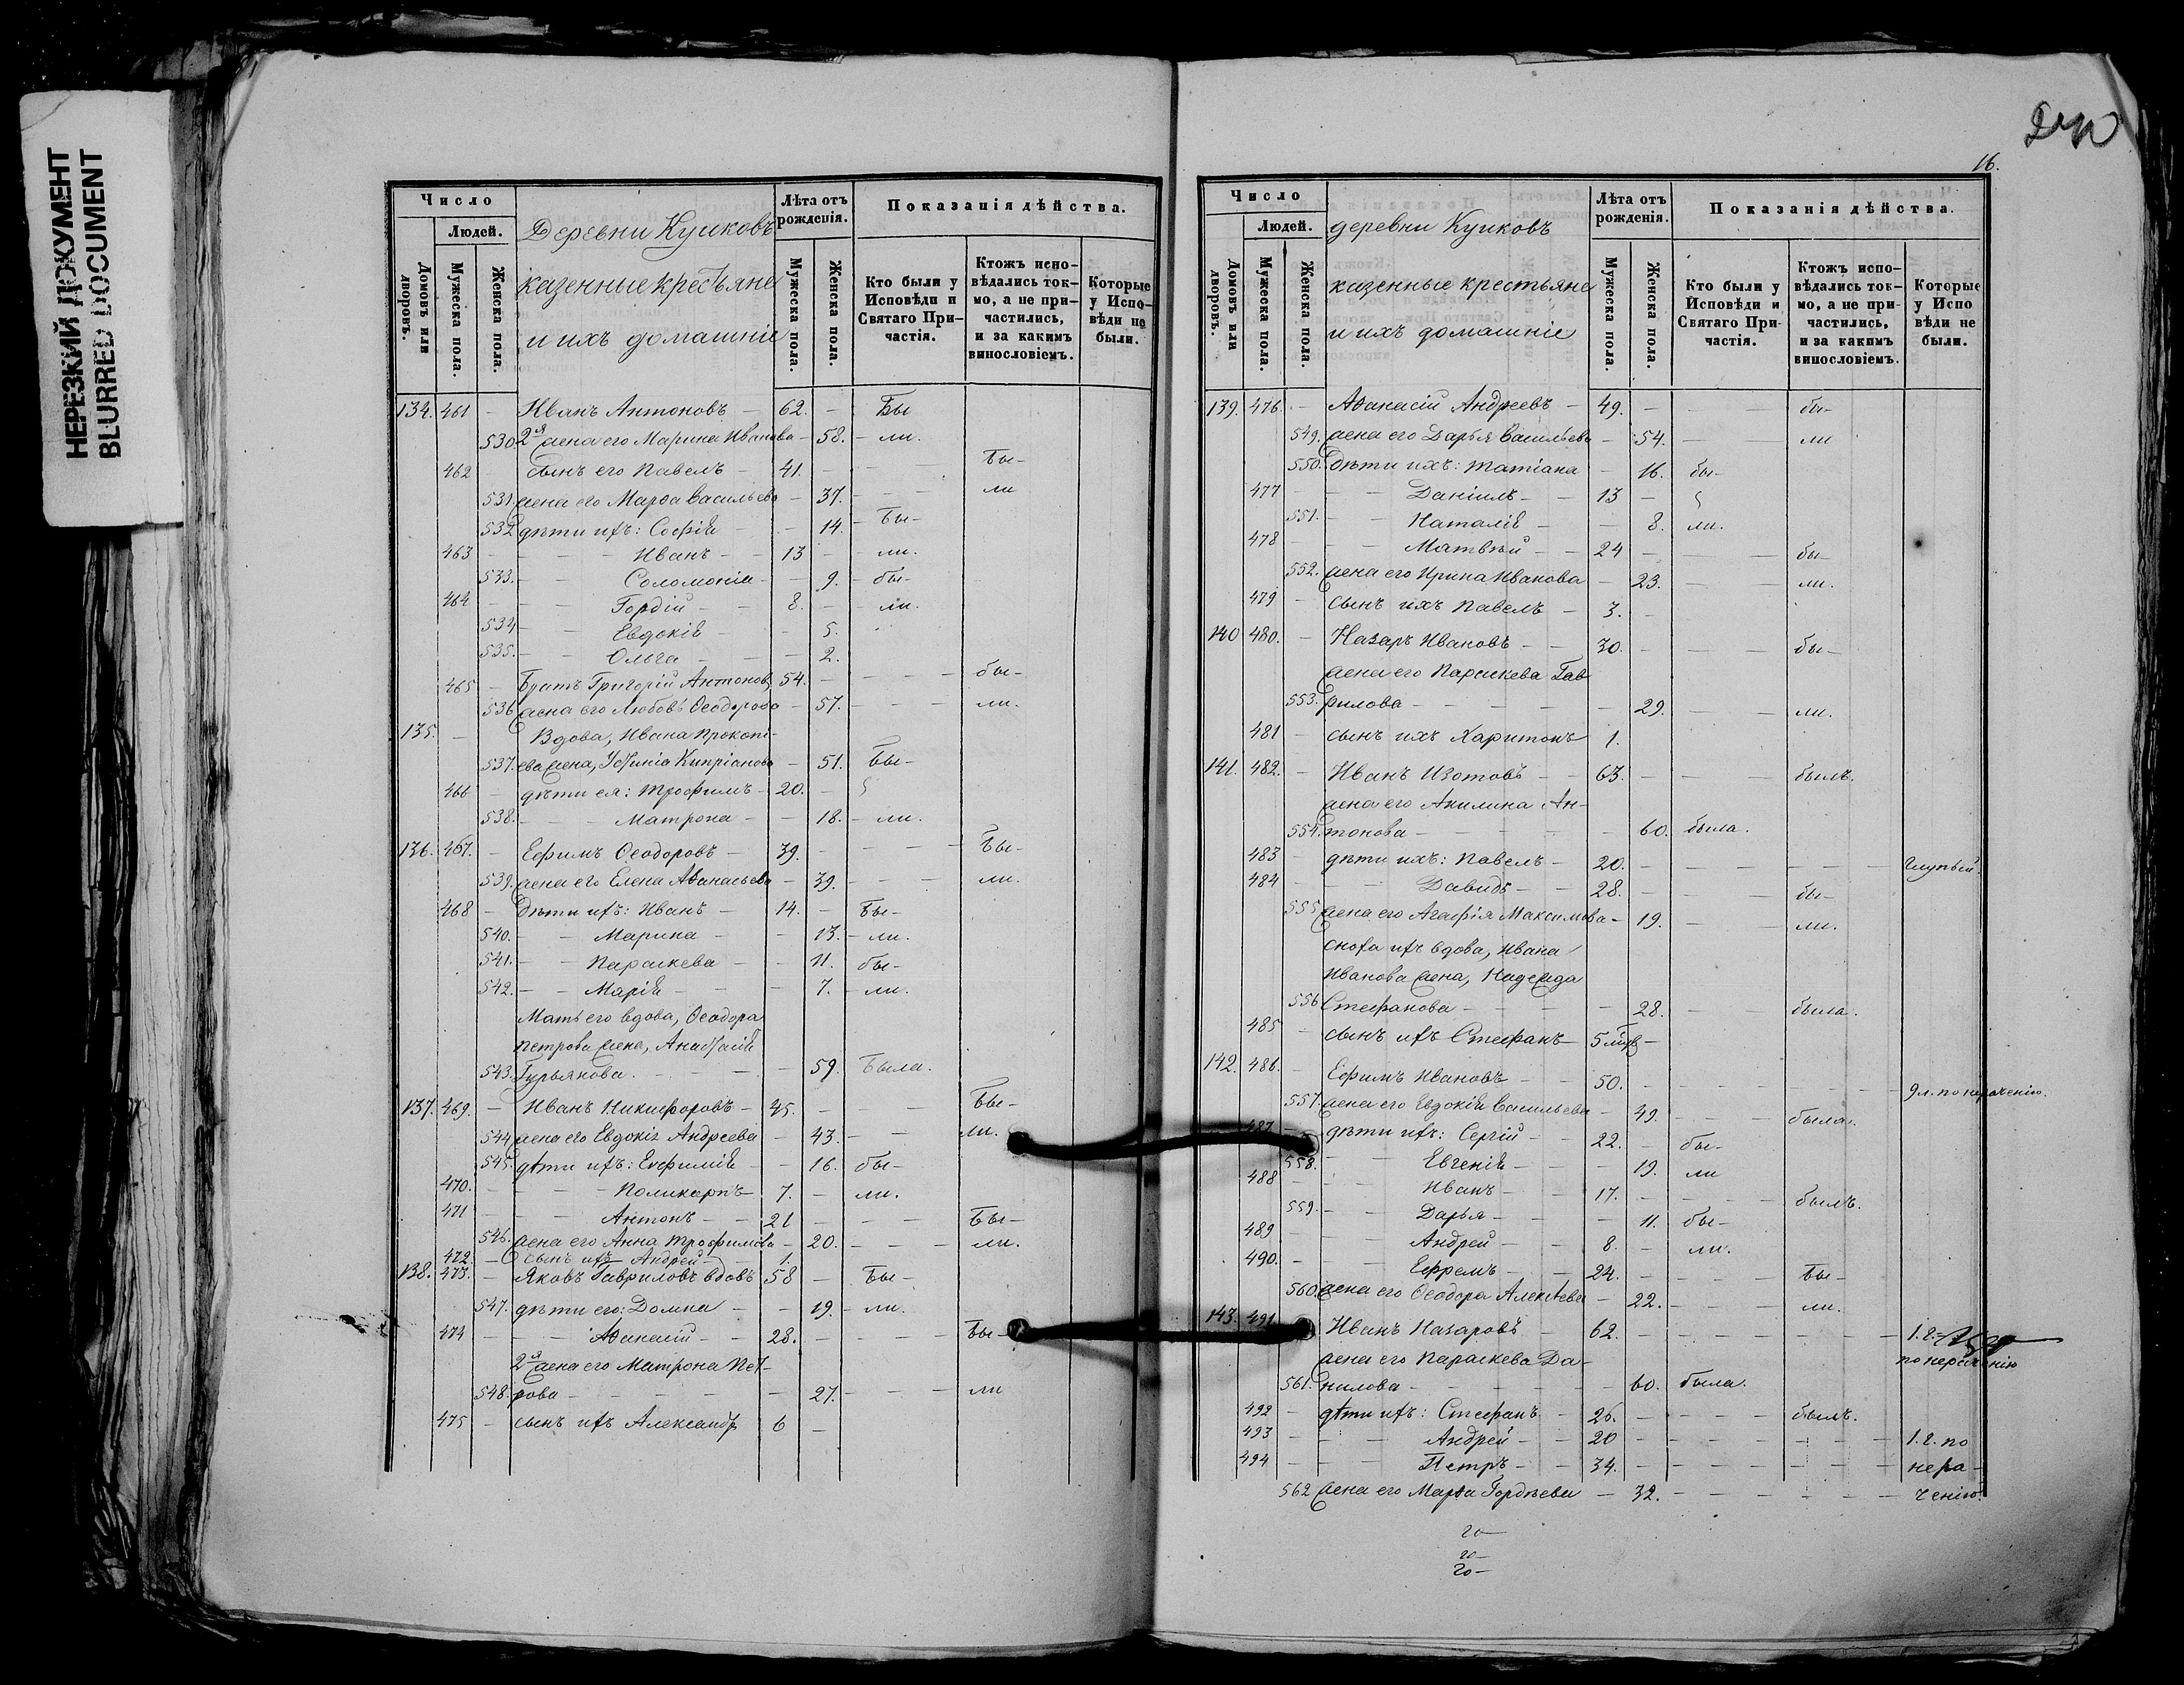 НЕРЕЗКИЙ ДОКУМЕНТ
BLURRED DOCUMENT
Число
Людей.
Домовъ или дворовъ.
Мужеска пола.
Женска пола.
Деревни Кучковъ
казенные крестьяне
и ихъ домашніе
Лѣта отъ рожденія.
Мужеска пола.
Женска пола.
Показанія дѣйства.
Кто были у Исповѣди и Святаго При-частія.
Ктожъ испо-вѣдались ток-мо, а не при-частились, и за какимъ винословіемъ.
Которые у Испо-вѣди не были.
134. 461 - Иванъ Антоновъ - 62. - Бы
530. 2я жена его Марина Иванова - 58. - ли.
462 - сынъ его Павелъ - 41. - - - Бы-
531. жена его Марѳа Васильева - 37. - - - ли
532 дѣти ихъ: Софія - - 14. - Бы-
463 - - - Иванъ - - 13 - - ли.
533. - - Соломонія - - 9. - бы-
464 - - - Гордій - - 8. - - ли.
534 - - Евдокія - - 5.
535. - - Ольга - - - 2.
465 - Братъ Григорій Антоновъ 54. - - - - бы-
536 жена его Любовь Ѳеодорова - 57. - - - ли.
135. - Вдова, Ивана Прокопі-
537. ева жена, Устинія Кипріанова - 51. Бы-
466 - дѣти ея: Трофимъ - 20. -
538. - - - Матрона - - 18. - ли.
136. 467. - Ефимъ Ѳеодоровъ - 39. - - - - Бы-
539. жена его Елена Аѳанасьева - 39. - - - ли.
468 - Дѣти ихъ: Иванъ - 14. - Бы-
540. - - Марина - - 13. - ли.
541. - - Параскева - - 11. бы-
542. - - Марія - - - 7. - ли.
Мать его вдова, Ѳеодора
Петрова жена, Анастасія
543. Гурьянова. - - - - 59. Была.
137. 469. - Иванъ Никифоровъ - 45. - - - Бы-
544 жена его Евдокія Андреева - 43. - - ли.
545. дѣти ихъ: Евфимія - - 16. бы-
470. - - - Поликарпъ - 7. - ли.
471 - - - Антонъ - - 21 - - - Бы-
546. жена его Анна Трофимова - 20. - - - ли.
472. - сынъ ихъ Андрей - - 1.
138. 473. - Яковъ Гавриловъ вдовъ 58 - Бы-
547. дѣти его: Домна - - 19. - ли.
474 - - - Аѳанасій - - 28. - - - - Бы-
2я жена его Матрона Пет-
548. рова - - - - - - 27. - - - ли
475 - сынъ ихъ Александръ 6 -
16.
Число
Людей.
Домовъ или дворовъ.
Мужеска пола.
Женска пола.
деревни Кучковъ
казенные крестьяне
и ихъ домашніе
Лѣта отъ рожденія.
Мужеска пола.
Женска пола.
Показанія дѣйства.
Кто были у Исповѣди и Святаго При-частія.
Ктожъ испо-вѣдались ток-мо, а не при-частились, и за какимъ винословіемъ.
Которые у Испо вѣди не были.
139. 476. - Аѳанасій Андреевъ - 49. - - бы-
549. жена его Дарья Васильева - 54. - ли
550. Дѣти ихъ: Татіана - 16. бы-
477 - - - Даніилъ - - 13 -
551. - - Наталія - - 8. ли.
478 - - - Матвѣй - - 24 - - - бы-
552. жена его Ирина Иванова - 23. - - ли.
479 - сынъ ихъ Павелъ - 3. -
140 480. - Назаръ Ивановъ - - 30. - - - бы-
жена его Параскева Гав
553. рилова - - - - - 29. - - ли.
481 - сынъ ихъ Харитонъ 1.
141. 482. - Иванъ Изотовъ - - 63. - - - былъ.
жена его Акилина Ан-
554. тонова - - - - - 60. была.
483 - дѣти ихъ: Павелъ - 20. - - - - - глупый.
484 - - - Давидъ - - 28. - - - бы-
555 жена его Агафія Максимова - 19. - - ли.
сноха ихъ вдова, Ивана
Иванова жена, Надежда
556 Стефанова - - - - 28. - - была.
485 - сынъ ихъ Стефанъ - 5 мцв -
142. 486. - Ефимъ Ивановъ - - 50. - - - - - - 9 л. по нераченію.
557. жена его Евдокія Васильева - 49. - - была.
487 - дѣти ихъ: Сергій - - 22. - бы-
558. - - Евгенія - - - 19. ли
488 - - - Иванъ - - 17. - - - - былъ.
559. - - Дарья - - - 11. бы-
489 - - - Андрей - - 8. - ли.
490. - - - Ефремъ - - 24. - - - - Бы-
560. жена его Ѳеодора Алексѣева - 22. - - - ли.
143. 491. Иванъ Назаровъ - 62. - - - - - - 1. г.
по нераченію
жена его Параскева Да-
561. нилова - - - - - - 60. была.
492 - дѣти ихъ: Стефанъ - 26. - - - - былъ.
493 - - - Андрей - - 20 - - - - - - 1. г. по
494 - - - Петръ - - 34. - - - - - - нера-
562 жена его Марѳа Гордѣева - 32. - - - - - ченію.
20-
20-
20-